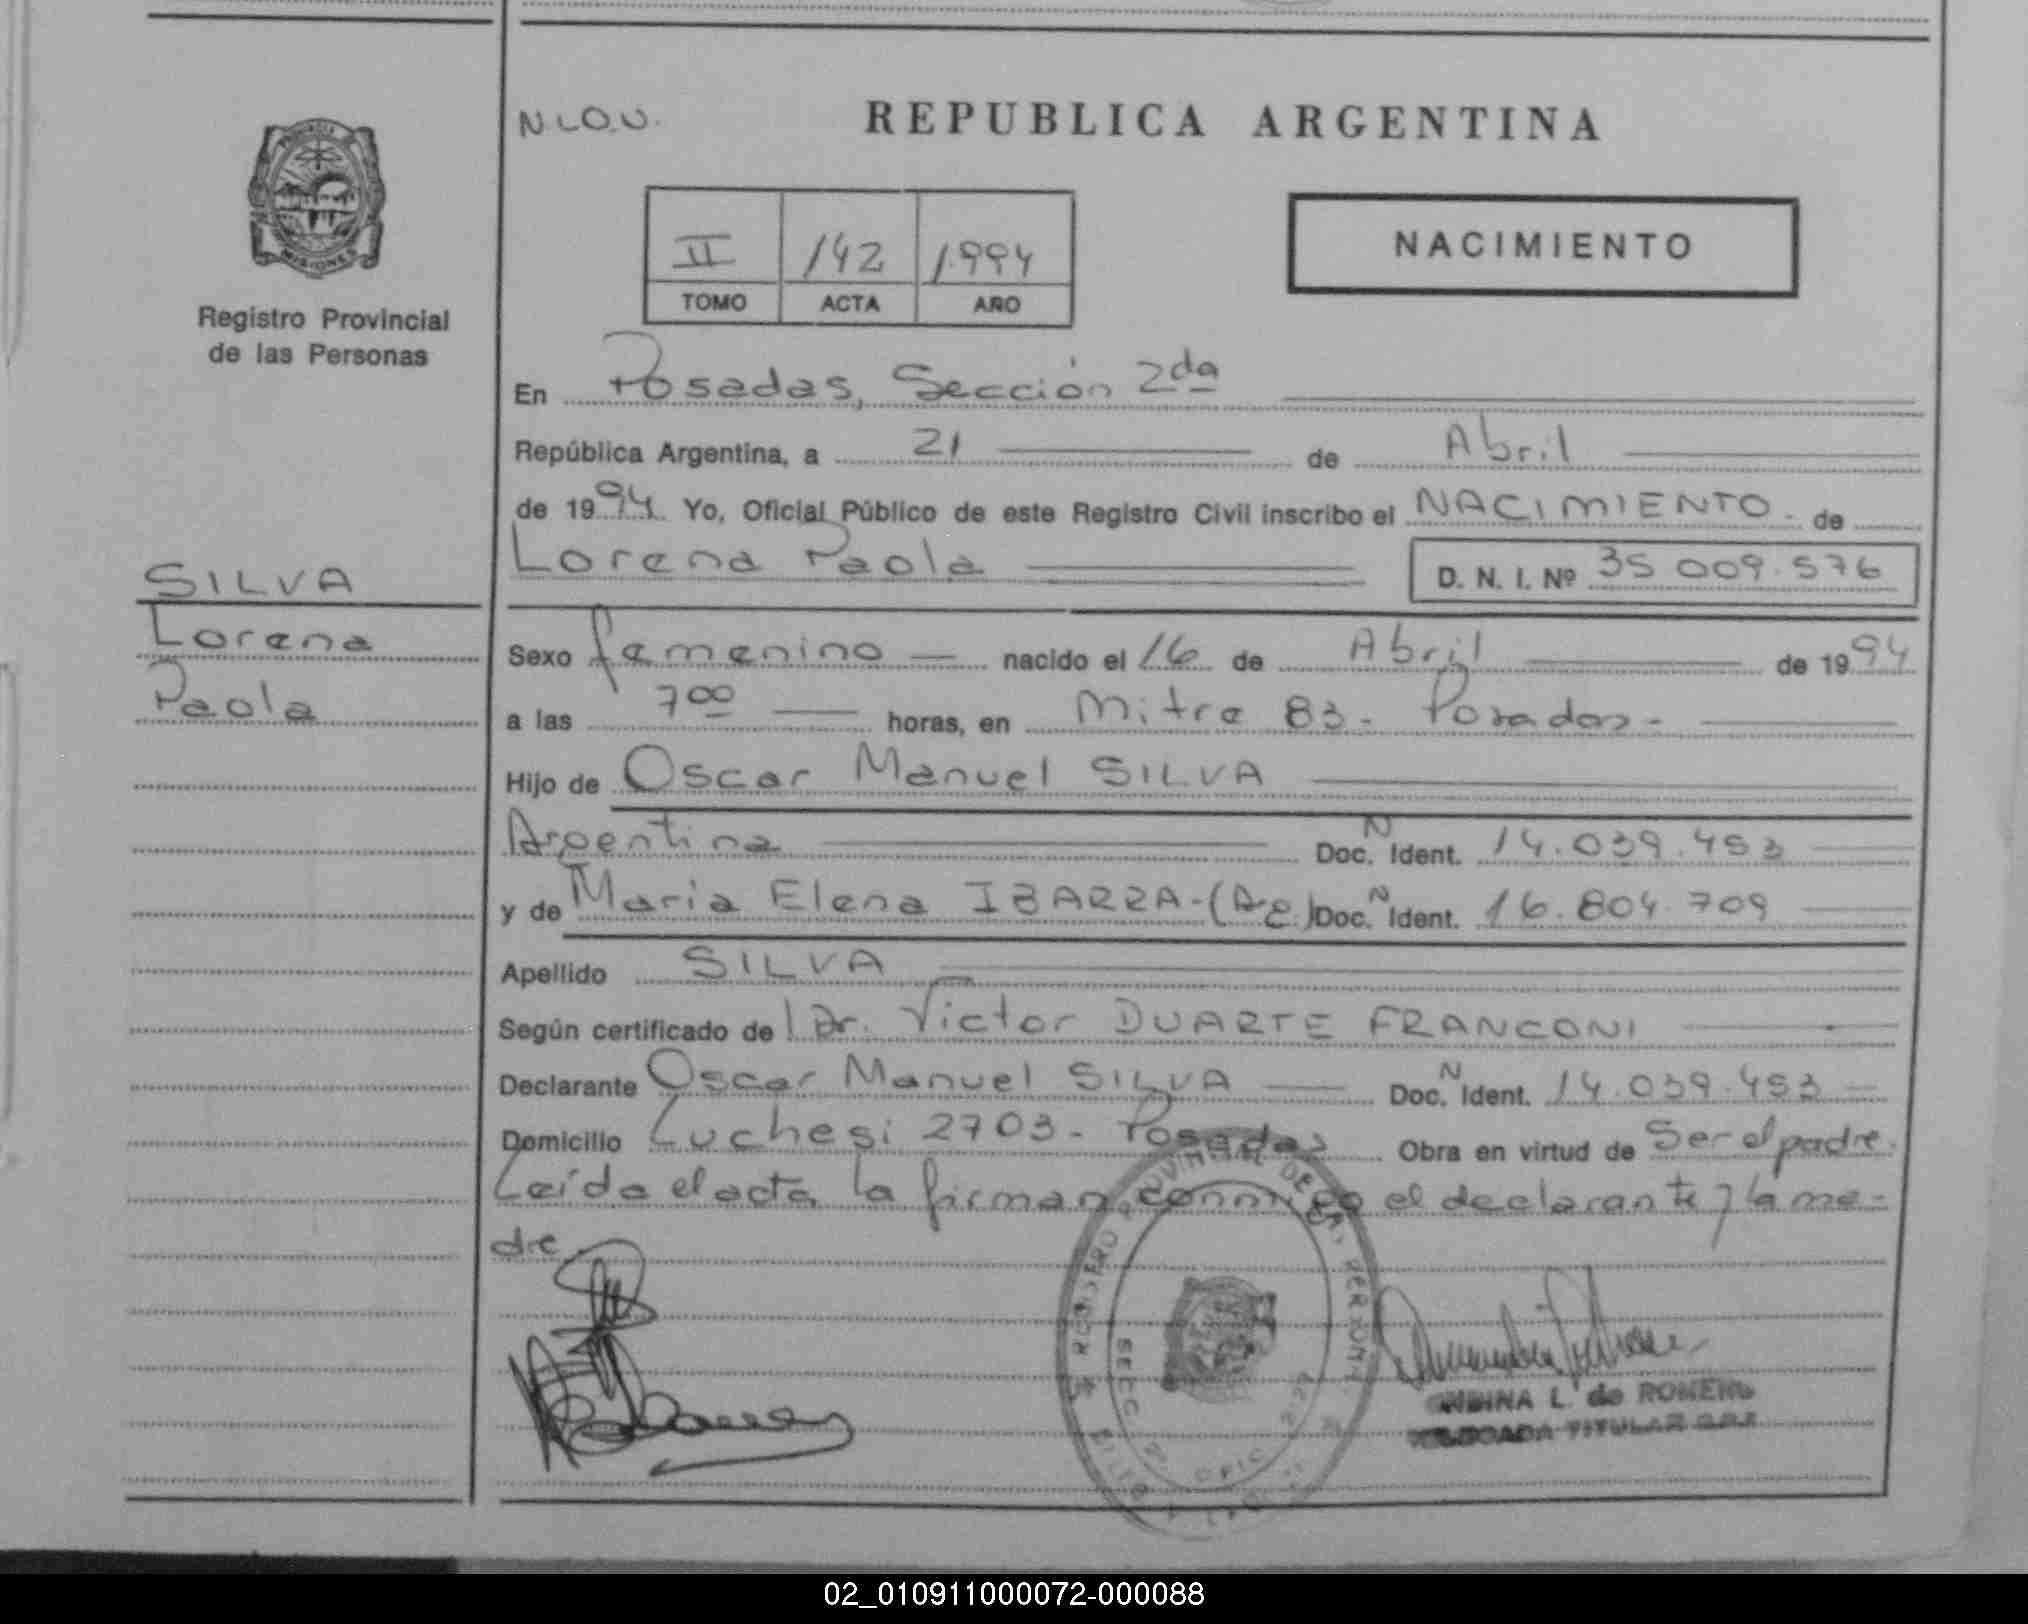 N.L.O.U.
REPUBLICA ARGENTINA
MISIONES
II 142 1.994
TOMO ACTA AÑO
NACIMIENTO
Registro Provincial
de las Personas
En Posadas, Sección 2da
República Argentina, a 21 de Abril
de 1994 Yo, Oficial Público de este Registro Civil inscribo el NACIMIENTO. de
Lorena Paola D. N. I. Nº 35 009.576
SILVA
Lorena
Paola
Sexo femenino nacido el 16 de Abril de 1994
a las 7 00 horas, en Mitre 83 - Posadas -
Hijo de Oscar Manuel SILVA
Argentina Doc. N Ident. 14.039.453
y de Maria Elena IBARRA - (Ag.) Doc. N Ident. 16.804.709
Apellido SILVA
Según certificado de Dr. Victor DUARTE FRANCONI
Declarante Oscar Manuel SILVA Doc. N Ident. 14.039.453
Domicilio Luchesi 2703 - Posadas Obra en virtud de Ser el padre.
Leída el acta, la firman conmigo el declarante y la ma-
dre
REGISTRO PROVINCIAL DE LAS PERSONAS
SECC 2
OFIC
L. de ROMERO
TITULAR
02_010911000072-000088